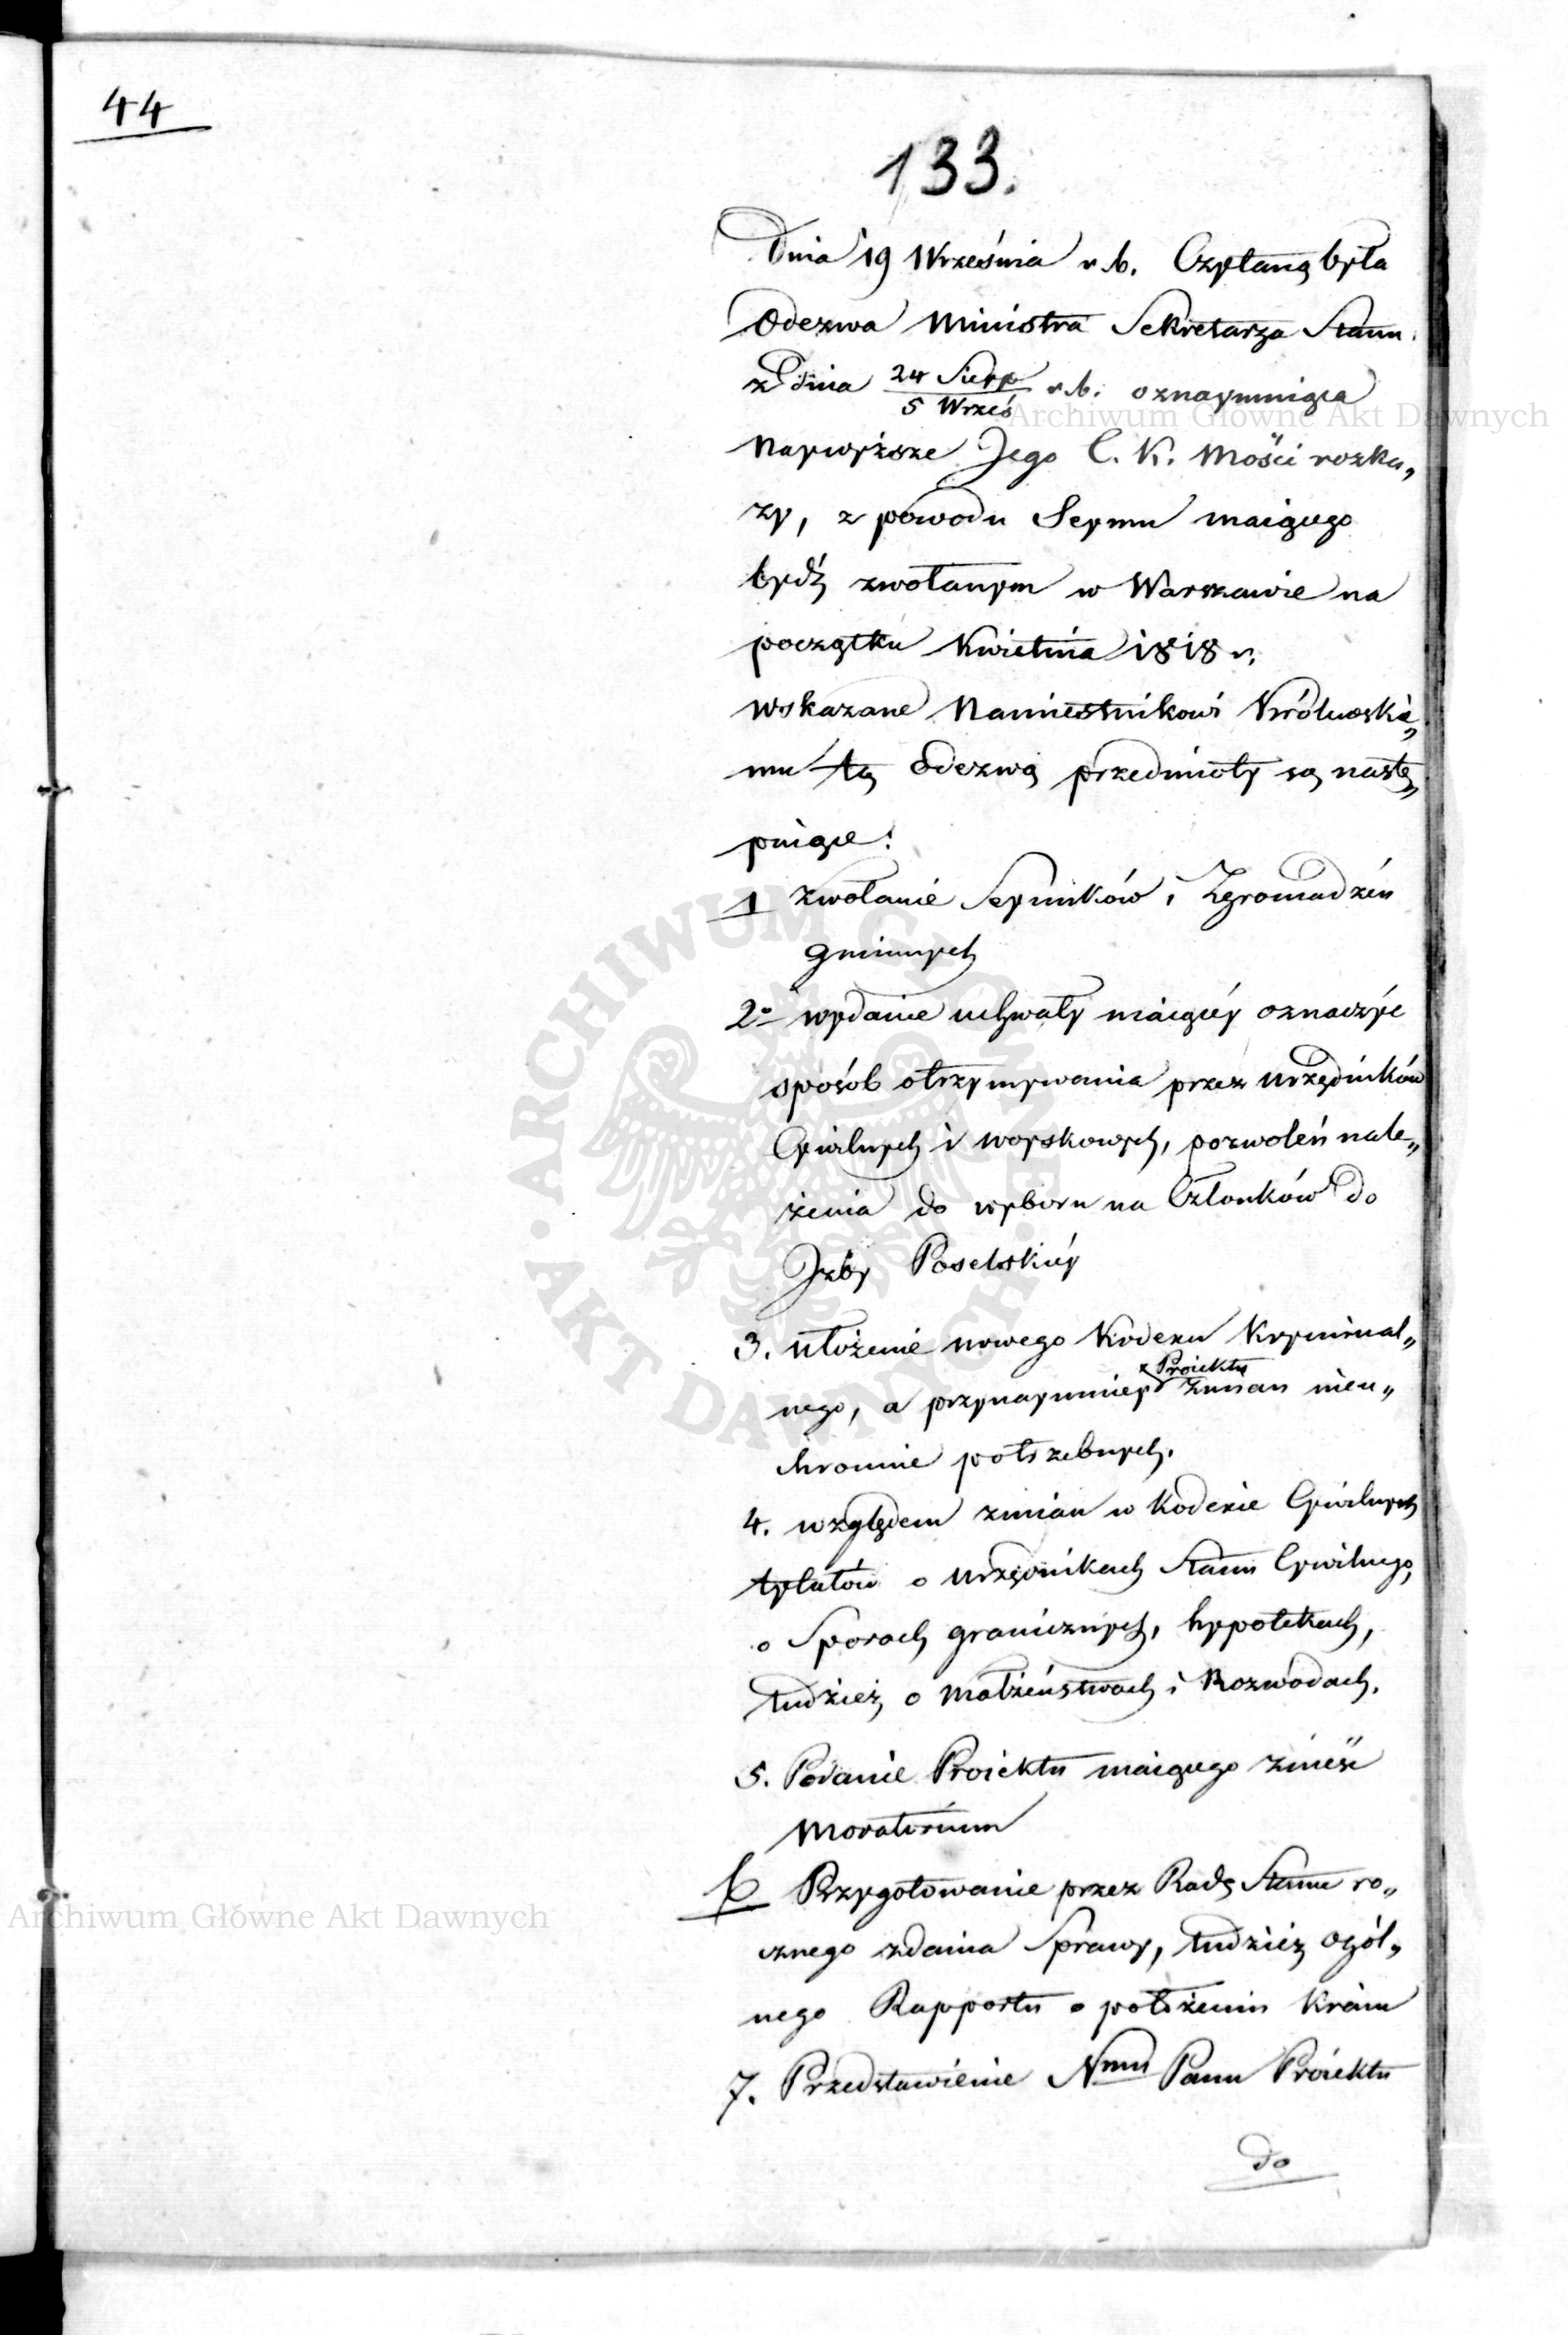 44
133.
Dnia 19 Września r. b. Czytaną była
Odezwa Ministra Sekretarza Stanu
z dnia 24 Sierp / 5 Wrześ r. b. oznaymuiąca
Naywyższe Jego C. K. Mości rozka„
zy, z powodu Seymu maiącego
bydź zwołanym w Warszawie na
początku Kwietnia 1818 r.
wskazane Namiestnikowi Królewskie„
mu tą Odezwą przedmioty są nastę„
puiące:
1 Zwołanie Seymików i Zgromadzeń
gminnych
2o wydanie uchwały maiącéy oznaczyć
sposób otrzymywania przez urzędników
Cywilnych i woyskowych, pozwoleń nale„
żenia do wyboru na Członków do
Izby Poselskiéy
3. ułożenie nowego Kodexu Kryminal„
nego, a przynaymniey Proiektu zmian nieu„
chronnie potrzebnych.
4. względem zmian w Kodexie Cywilnych
tytułów o urzędnikach Stanu Cywilnego,
o Sporach granicznych, hypotekach,
tudzież o Małżeństwach i Rozwodach.
5. Podanie Proiektu maiącego znieść
Moratorium
6 Przygotowanie przez Radę Stanu ro„
cznego zdania Sprawy, tudzież ogól„
nego Rapportu o położeniu Kraiu
7. Przedstawienie Nmu Panu Proiektu
do
Archiwum Główne Akt Dawnych
Archiwum Główne Akt Dawnych
ARCHIWUM GŁÓWNE · AKT DAWNYCH ·